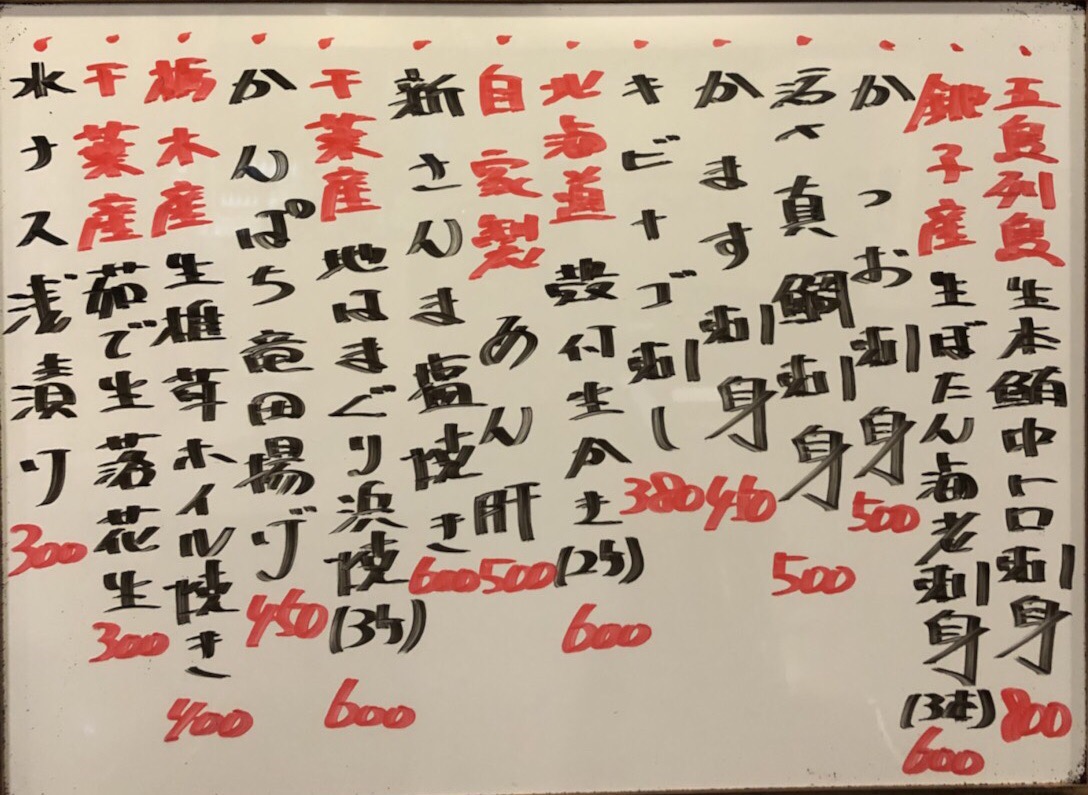 五島列島生本鮪中トロ刺身800
銚子産生ぼたん海老刺身(3本)600
かつお刺身500
活〆真鯛刺身500
かます刺身450
キビナゴ刺し380
北海道殻付生かき(2ケ)600
自家製あん肝500
新さんま塩焼き600
千葉産地はまぐり浜焼(3ケ)600
かんぱち竜田揚げ450
栃木産生椎茸ホイル焼き400
千葉産茹で生落花生300
水ナス浅漬り300